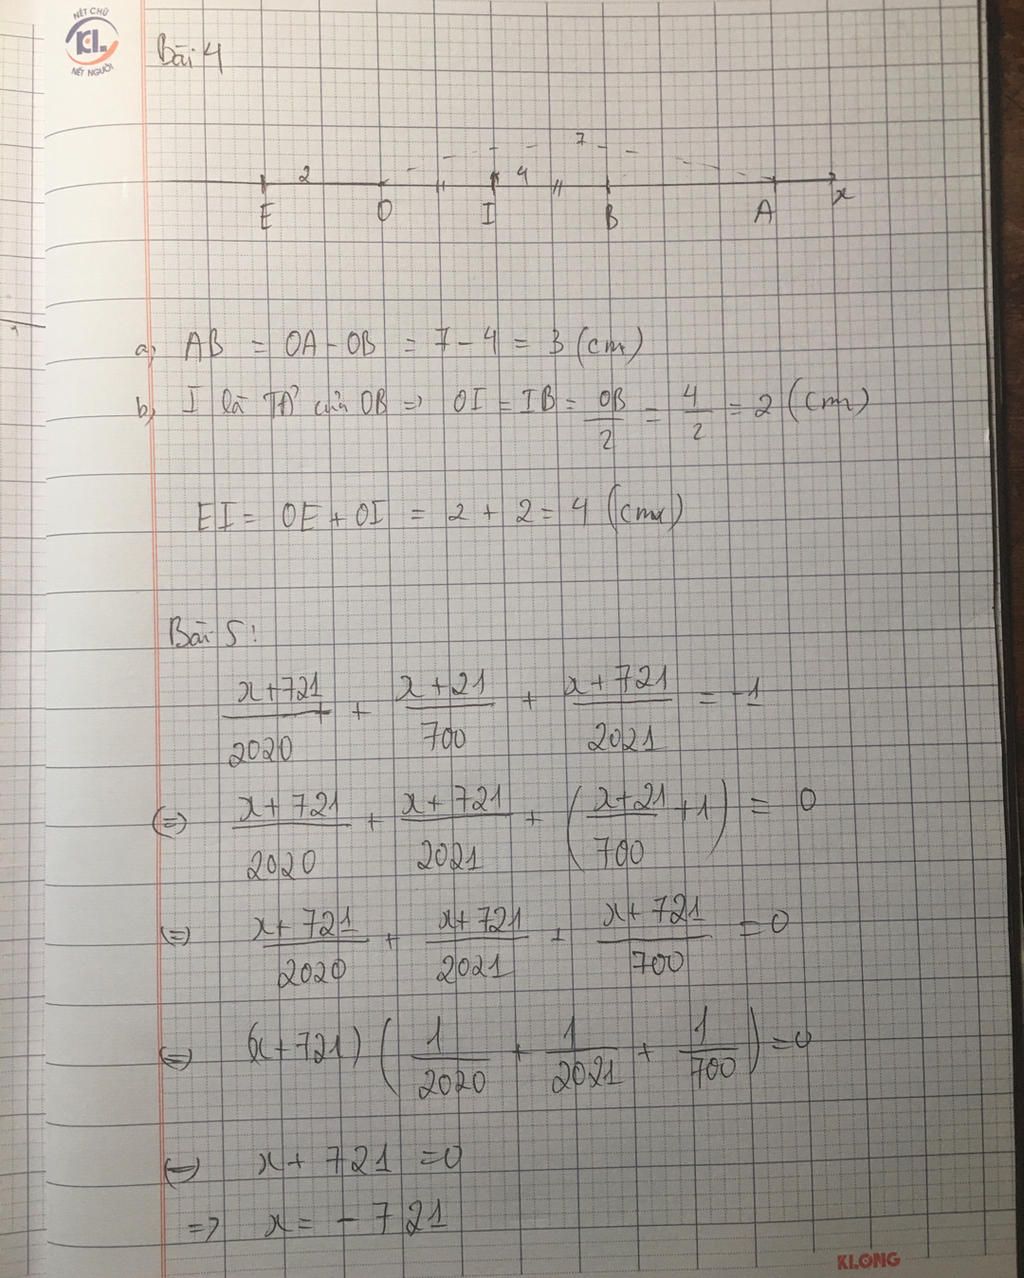 NÉT CHỮ
KL
NẾT NGƯỜI
Bài 4
7
2 4
E O I B A x
a) AB = OA - OB = 7 - 4 = 3 (cm)
b) I là TĐ của OB => OI = IB = OB/2 = 4/2 = 2 (cm)
EI = OE + OI = 2 + 2 = 4 (cm)
Bài 5:
x+721/2020 + x+21/700 + x+721/2021 = -1
(=) x+721/2020 + x+721/2021 + (x+21/700 + 1) = 0
(=) x+721/2020 + x+721/2021 + x+721/700 = 0
(=) (x+721) (1/2020 + 1/2021 + 1/700) = 0
(=) x + 721 = 0
=> x = - 721
KLONG